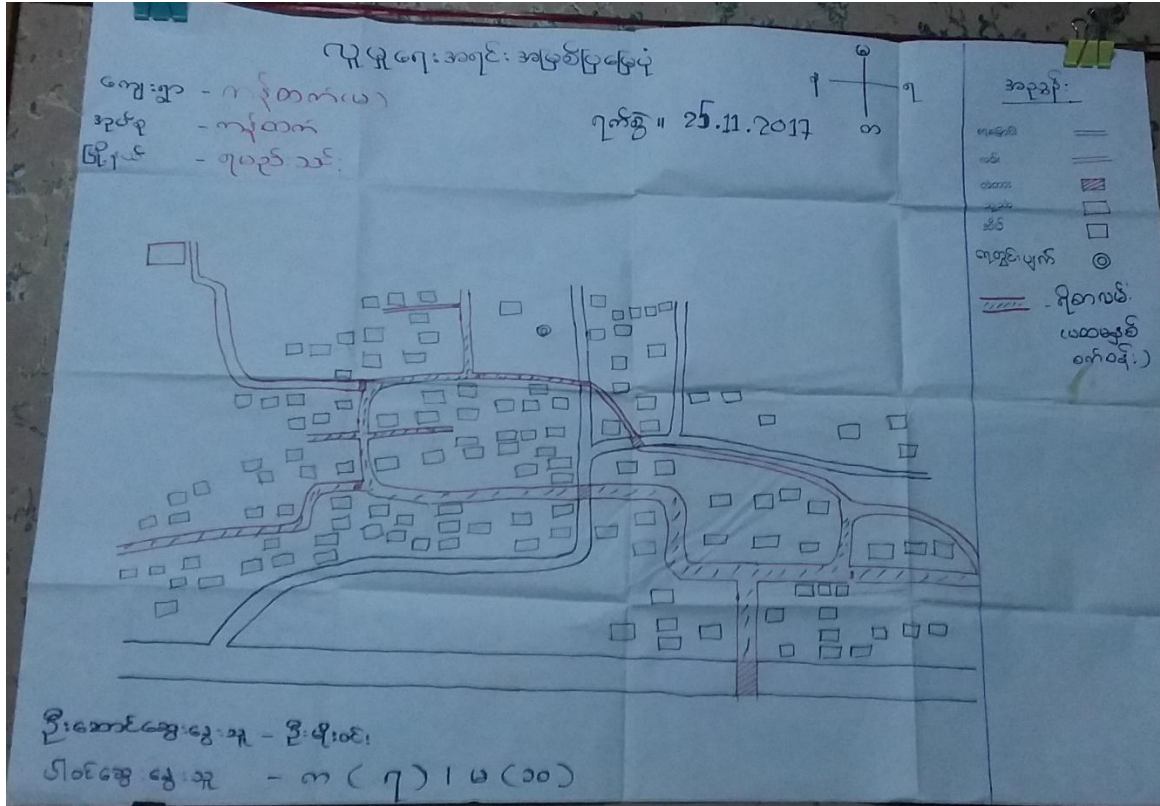 လူမှုရေးအရင်းအမြစ်ပြမြေပုံ
ကျေးရွာ - ကန်တက်(မ)
အုပ်စု - ကန်တက်
မြို့နယ် - ရမည်းသင်း
ရက်စွဲ။ 25.11.2017
မ
န
ရ
တ
အညွှန်း
လမ်း
တံတား
အိမ်
ရေတွင်းပျက်
- ရိုးစာလမ်း
(ပထမနှစ်
စက်ဝန်း)
ဦးဆောင်ဆွေးနွေးသူ - ဦးမိုးဝင်း
ပါဝင်ဆွေးနွေးသူ - ကျ (၇) ၊ မ (၁၀)